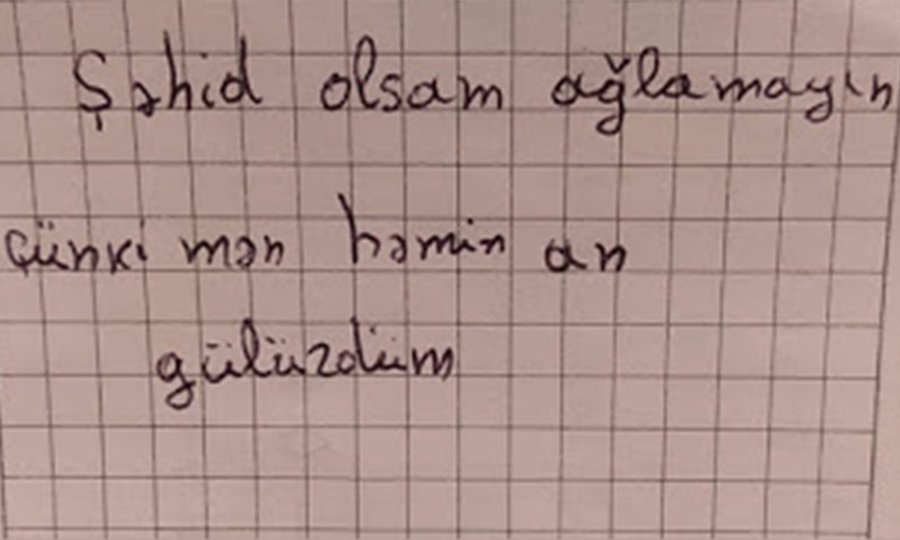 Şəhid olsam ağlamayın
çünki mən həmin an
gülüzdüm